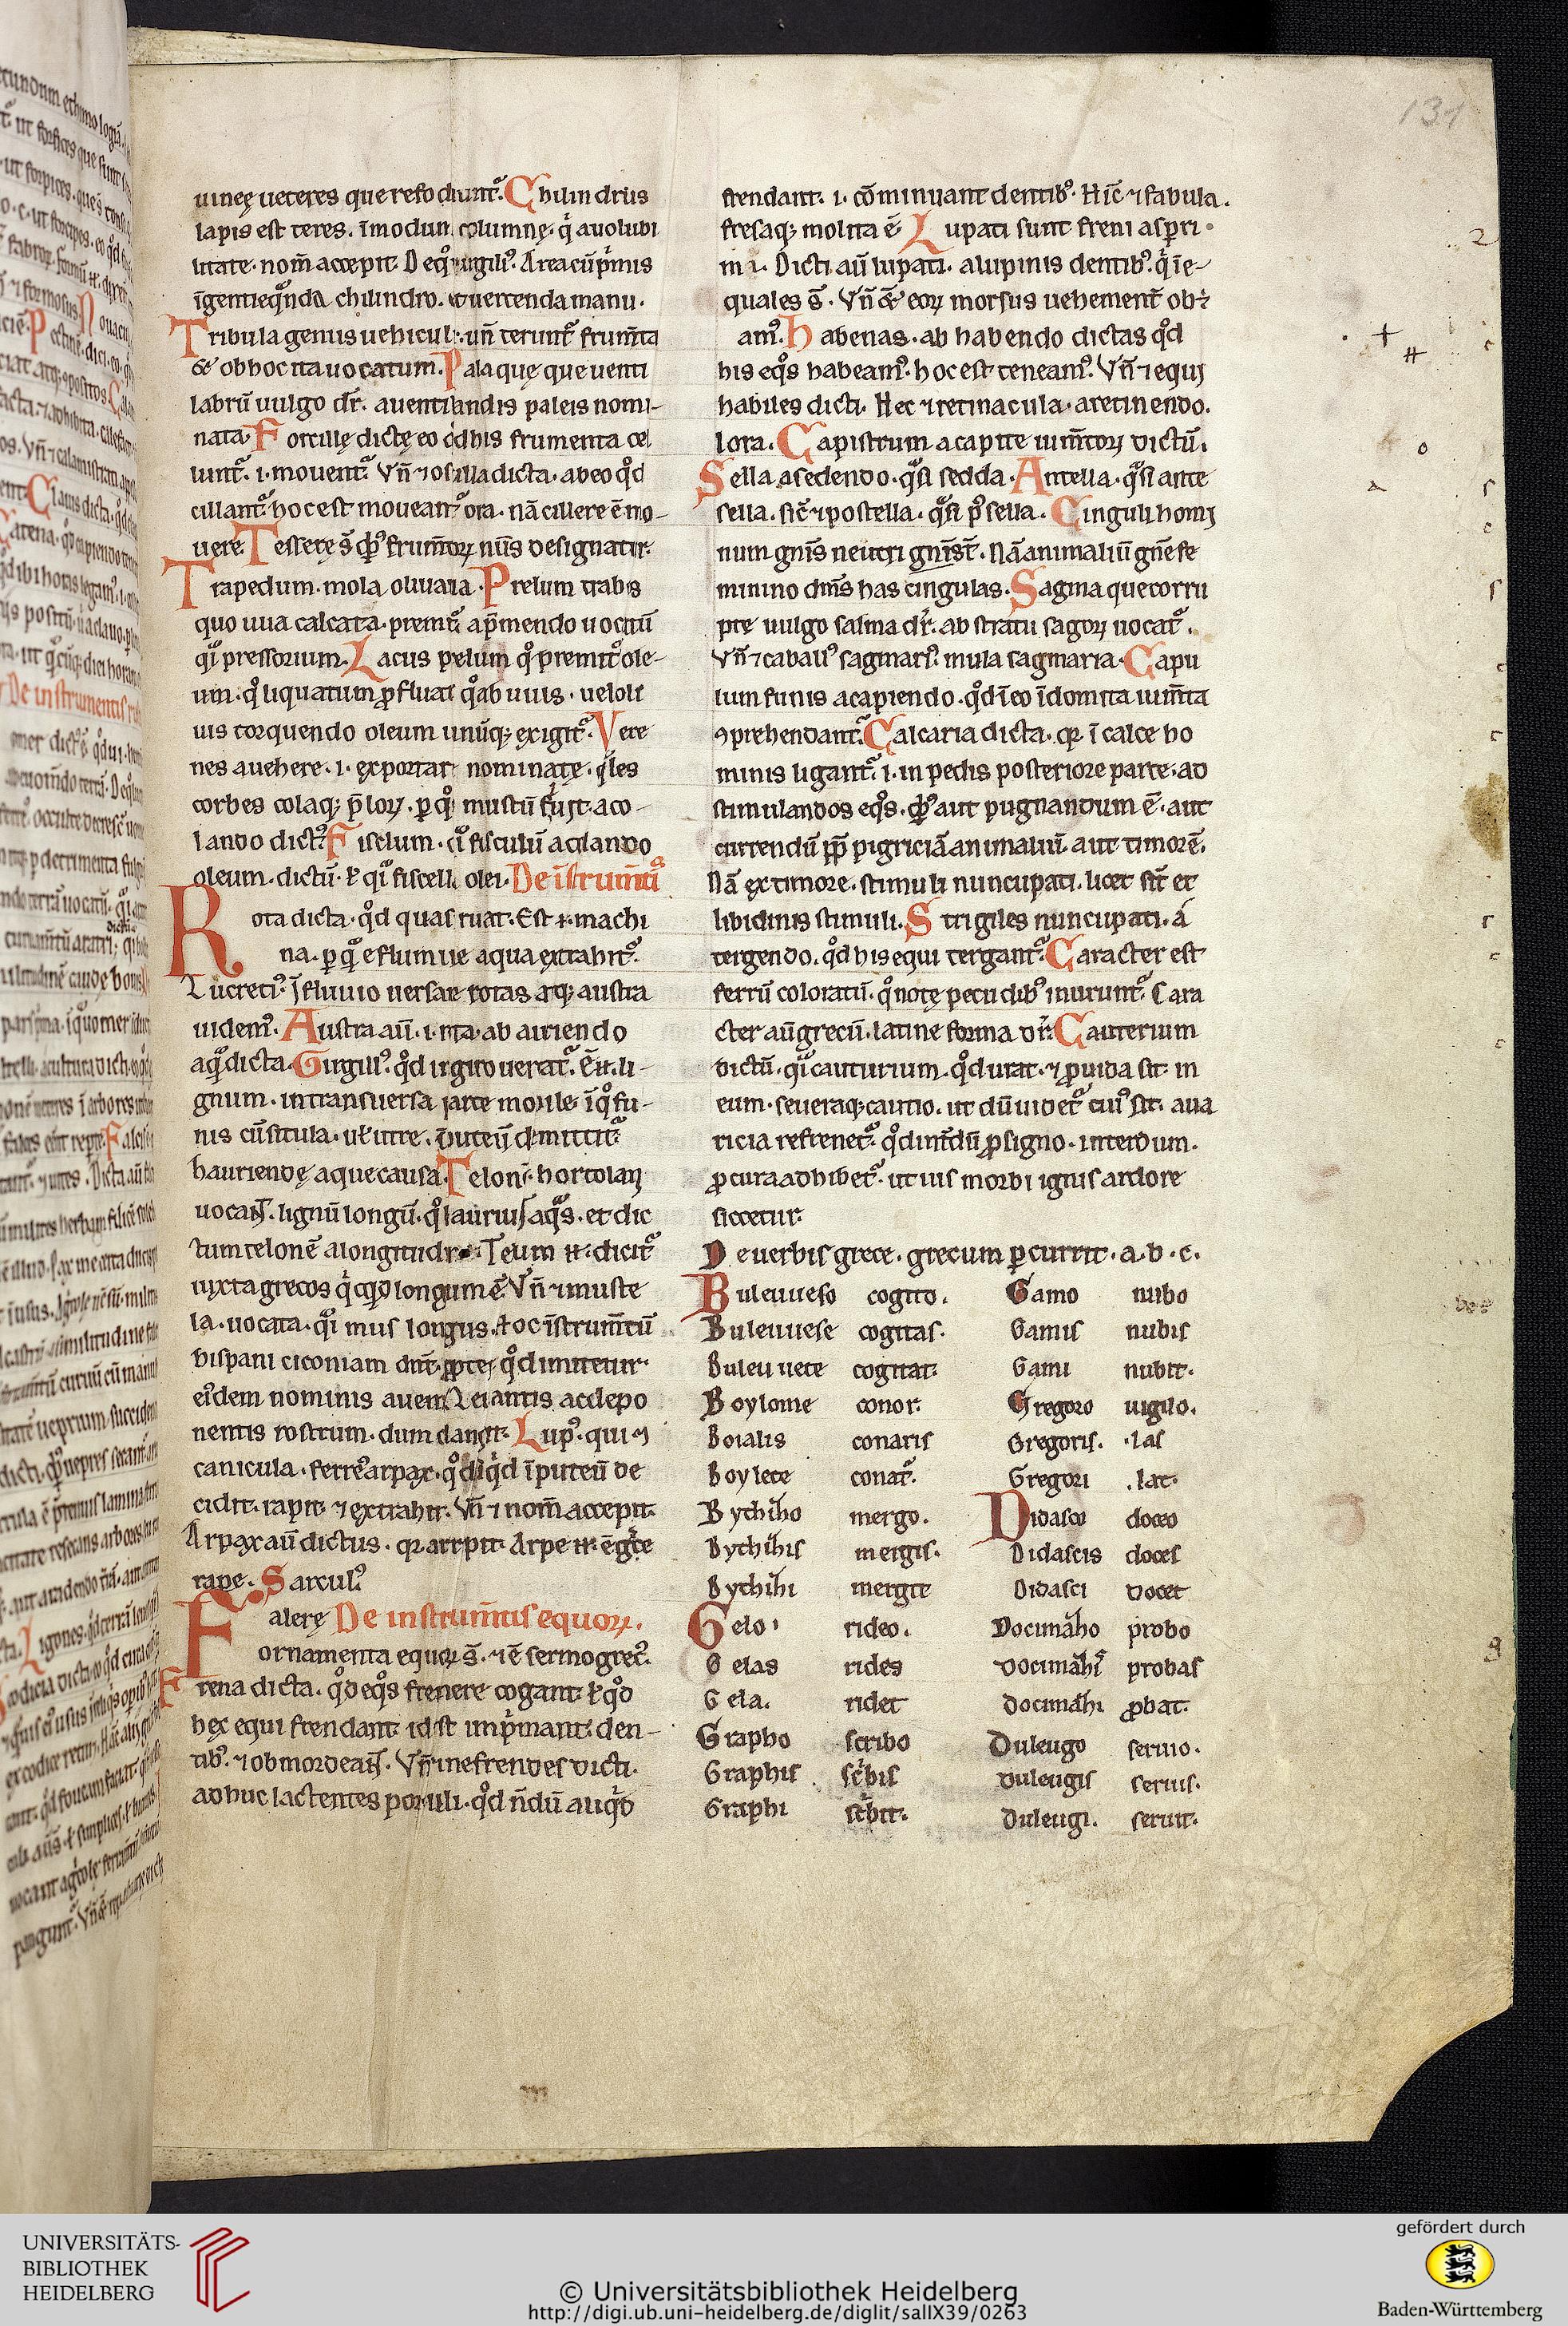 131
uineę ueteres que refodiuntᷣ. Chilindrus
lapis est teres. ī modum columnę. q̇ a uolubi
litate nom̄ accepit. De q̊ uirgiliꝰ. Area cū ṗmis
īgenti eq̄nda chilindro. & uertenda manu.
Tribula genus uehiculi. un̄ teruntᷣ frum̄ta
& ob hoc ita uocatum. Pala quę que uenti
labrū uulgo dr̄. a uentilandis paleis nomi-
nata. Forcillę dictę eo qd his frumenta cel
luntᷣ. i. mouentᷣ. Vn̄ ⁊ oscilla dicta. ab eo qd̊
cillantᷣ hoc est moueantᷣ ora. nā cillere ē mo-
uere. Tesserę s̄ qbꝰ frum̄toꝝ nūs designatᷣ.
Trapedum. mola oliuaria. Prelum trabis
quo uua calcata. premitᷣ a p̄mendo uocatū
q̄i pressorium. Lacus pelum q̊ premitᷣ ole-
um. q̊ liquatum ꝓfluat q̊ ab uuis. uel oli
uis torquendo oleum unūqꝫ exigitᷣ. Vere
nes a uehere. i. exportare nominatę. q̄les
corbes colaqꝫ p̄loꝝ. ꝑ q̊ mustū fluit. a co-
lando dictꝰ. Fiselum. q̄i fisculū a colando
oleum. dictū. ł q̄i fiscella olei. De īstrum̄ti
Rota dicta. qd̊ quasi ruat. Est .n. machi
na. ꝑ q̄ e flumine aqua extrahitᷣ.
Lucretiꝰ. I fluuio uersare rotas atqꝫ austra
uidemꝰ. Austra aū. i. rota. ab auriendo
aq̄ dicta. Girgillꝰ. qd̊ i giro ueratᷣ. ē .n. li-
gnum. in transuersa parte mobile. ī q̊ fu-
nis cū situla. uł utre. ī puteū demittitᷣ
hauriendę aque causa. Telonē. hortolani
uocant. lignū longū. q̊ hauriunt aq̄s. et dic
tum telonē a longitudine. Teum .n. dicitᷣ
iuxta grecos q̇cqd longum ē. Vn̄ ⁊ muste
la. uocata. q̄i mus longus. hoc īstrum̄tū
hispani ciconiam dnt. ppterea qd̊ imitetur
eidem nominis auem. Leuantis ac depo
nentis rostrum. dum clangit. Lupꝰ. qui ⁊
canicula. ferreꝰ arpax. q̊ dⁱ q̇d ī puteū de
cidit. rapit ⁊ extrahit. Vn̄ ⁊ nom̄ accepit.
Arpax aū dictus. qꝛ arripit. Arpe .n. ē gr̄ce
rape. Sarculꝰ
Falerę De instrum̄tis equoꝝ.
ornamenta equoꝝ s̄. ⁊ ē sermo grecꝰ.
Frena dicta. qd̊ eq̊s frenere cogant. ł q̊d
hęc equi frendant. id ist inp̄mant. den-
tibꝰ. ⁊ obmordeant. Vn̄ ⁊ nefrendes dicti.
adhuc lactentes porculi. qd̊ n̄dū aliq̇d
frendant. i. cōminuant dentibꝰ. Hic̄ ⁊ fabula.
fresaqꝫ molita ē. Lupati sunt freni asꝑri
mi. Dicti aū lupati. a lupinis dentibꝰ. q̇ īe-
quales s̄. Vn̄ & eoꝝ morsus uehement̄ ob⁊
amꝰ. Habenas. ab habendo dictas qd̊
his eq̊s habeamꝰ. hoc est teneamꝰ. Vn̄ ⁊ equi
habiles dicti. Hec ⁊ retinacula. a retinendo.
lora. Capistrum a capite ium̄toꝝ dictū.
Sella a sedendo. q̄si sedda. Antella. q̄si ante
sella. sic̄ ⁊ postella. q̄si pꝰ sella. Cinguli homi
num gn̄is neutri gn̄is st̄. Nā animaliū gn̄e fe
minino dm̄s has cingulas. Sagma que corru
pte uulgo salma dr̄. ab stratu sagoꝝ uocatᷣ.
Vn̄ ⁊ caballꝰ sagmariꝰ. mula sagmaria. Capu
lum funis a capiendo. qd̊ ī eo īdomita ium̄ta
ꝯprehendantᷣ. Calcaria dicta. qꝛ ī calce ho
minis ligantᷣ. i. in pedis posteriore parte. ad
stimulandos eq̊s. qbꝰ aut pugnandum ē. aut
currendū ꝓp̄ pigriciā animaliū. aut timorē.
Nā ex timore. stimuli nuncupati. licet sīt et
libidinis stimuli. Strigiles nuncupati. á
tergendo. qd̊ his equi tergantᷣ. Caracter est
ferrū coloratū. q̊ notę pecudibꝰ inuruntᷣ. Cara
cter aū grecū. latine forma dr̄. Cauterium
dictū. q̄i cauturium. qd̊ urat. ⁊ ꝓuida sit in
eum. seueraqꝫ cautio. ut dū uidetᷣ cuiꝰ sit. aua
ricia refrenetᷣ. qd̊ int̄dū ꝓ signo. interdum.
ꝓ cura adhibetᷣ. ut uis morbi ignis ardore
siccetur.
De uerbis grece. grecum ꝑcurrit. a. b. c.
Buleuueso cogito. Gamo nubo
Buleuuese cogitas. Gamis nubis
Buleuuete cogitat. Gami nubit.
Boylome conor. Gregoro uigilo.
Boialis conaris Gregoris. .las
Boylete conatᷣ. Gregori .lat.
Bychiho mergo. Didasco doceo
Bychihis mergis. Didascis doces
Bychihi mergit Didasci docet
Gelo rideo. Docimaho probo
Gelas rides Docimahi probas
Gela. ridet Docimahi ꝓbat.
Grapho scribo Duleugo seruio.
Graphis sc̄bis Duleugis seruis.
Graphi sc̄bit. Duleugi. seruit.
UNIVERSITÄTS-
BIBLIOTHEK
HEIDELBERG
© Universitätsbibliothek Heidelberg
http://digi.ub.uni-heidelberg.de/diglit/salIX39/0263
gefördert durch
Baden-Württemberg